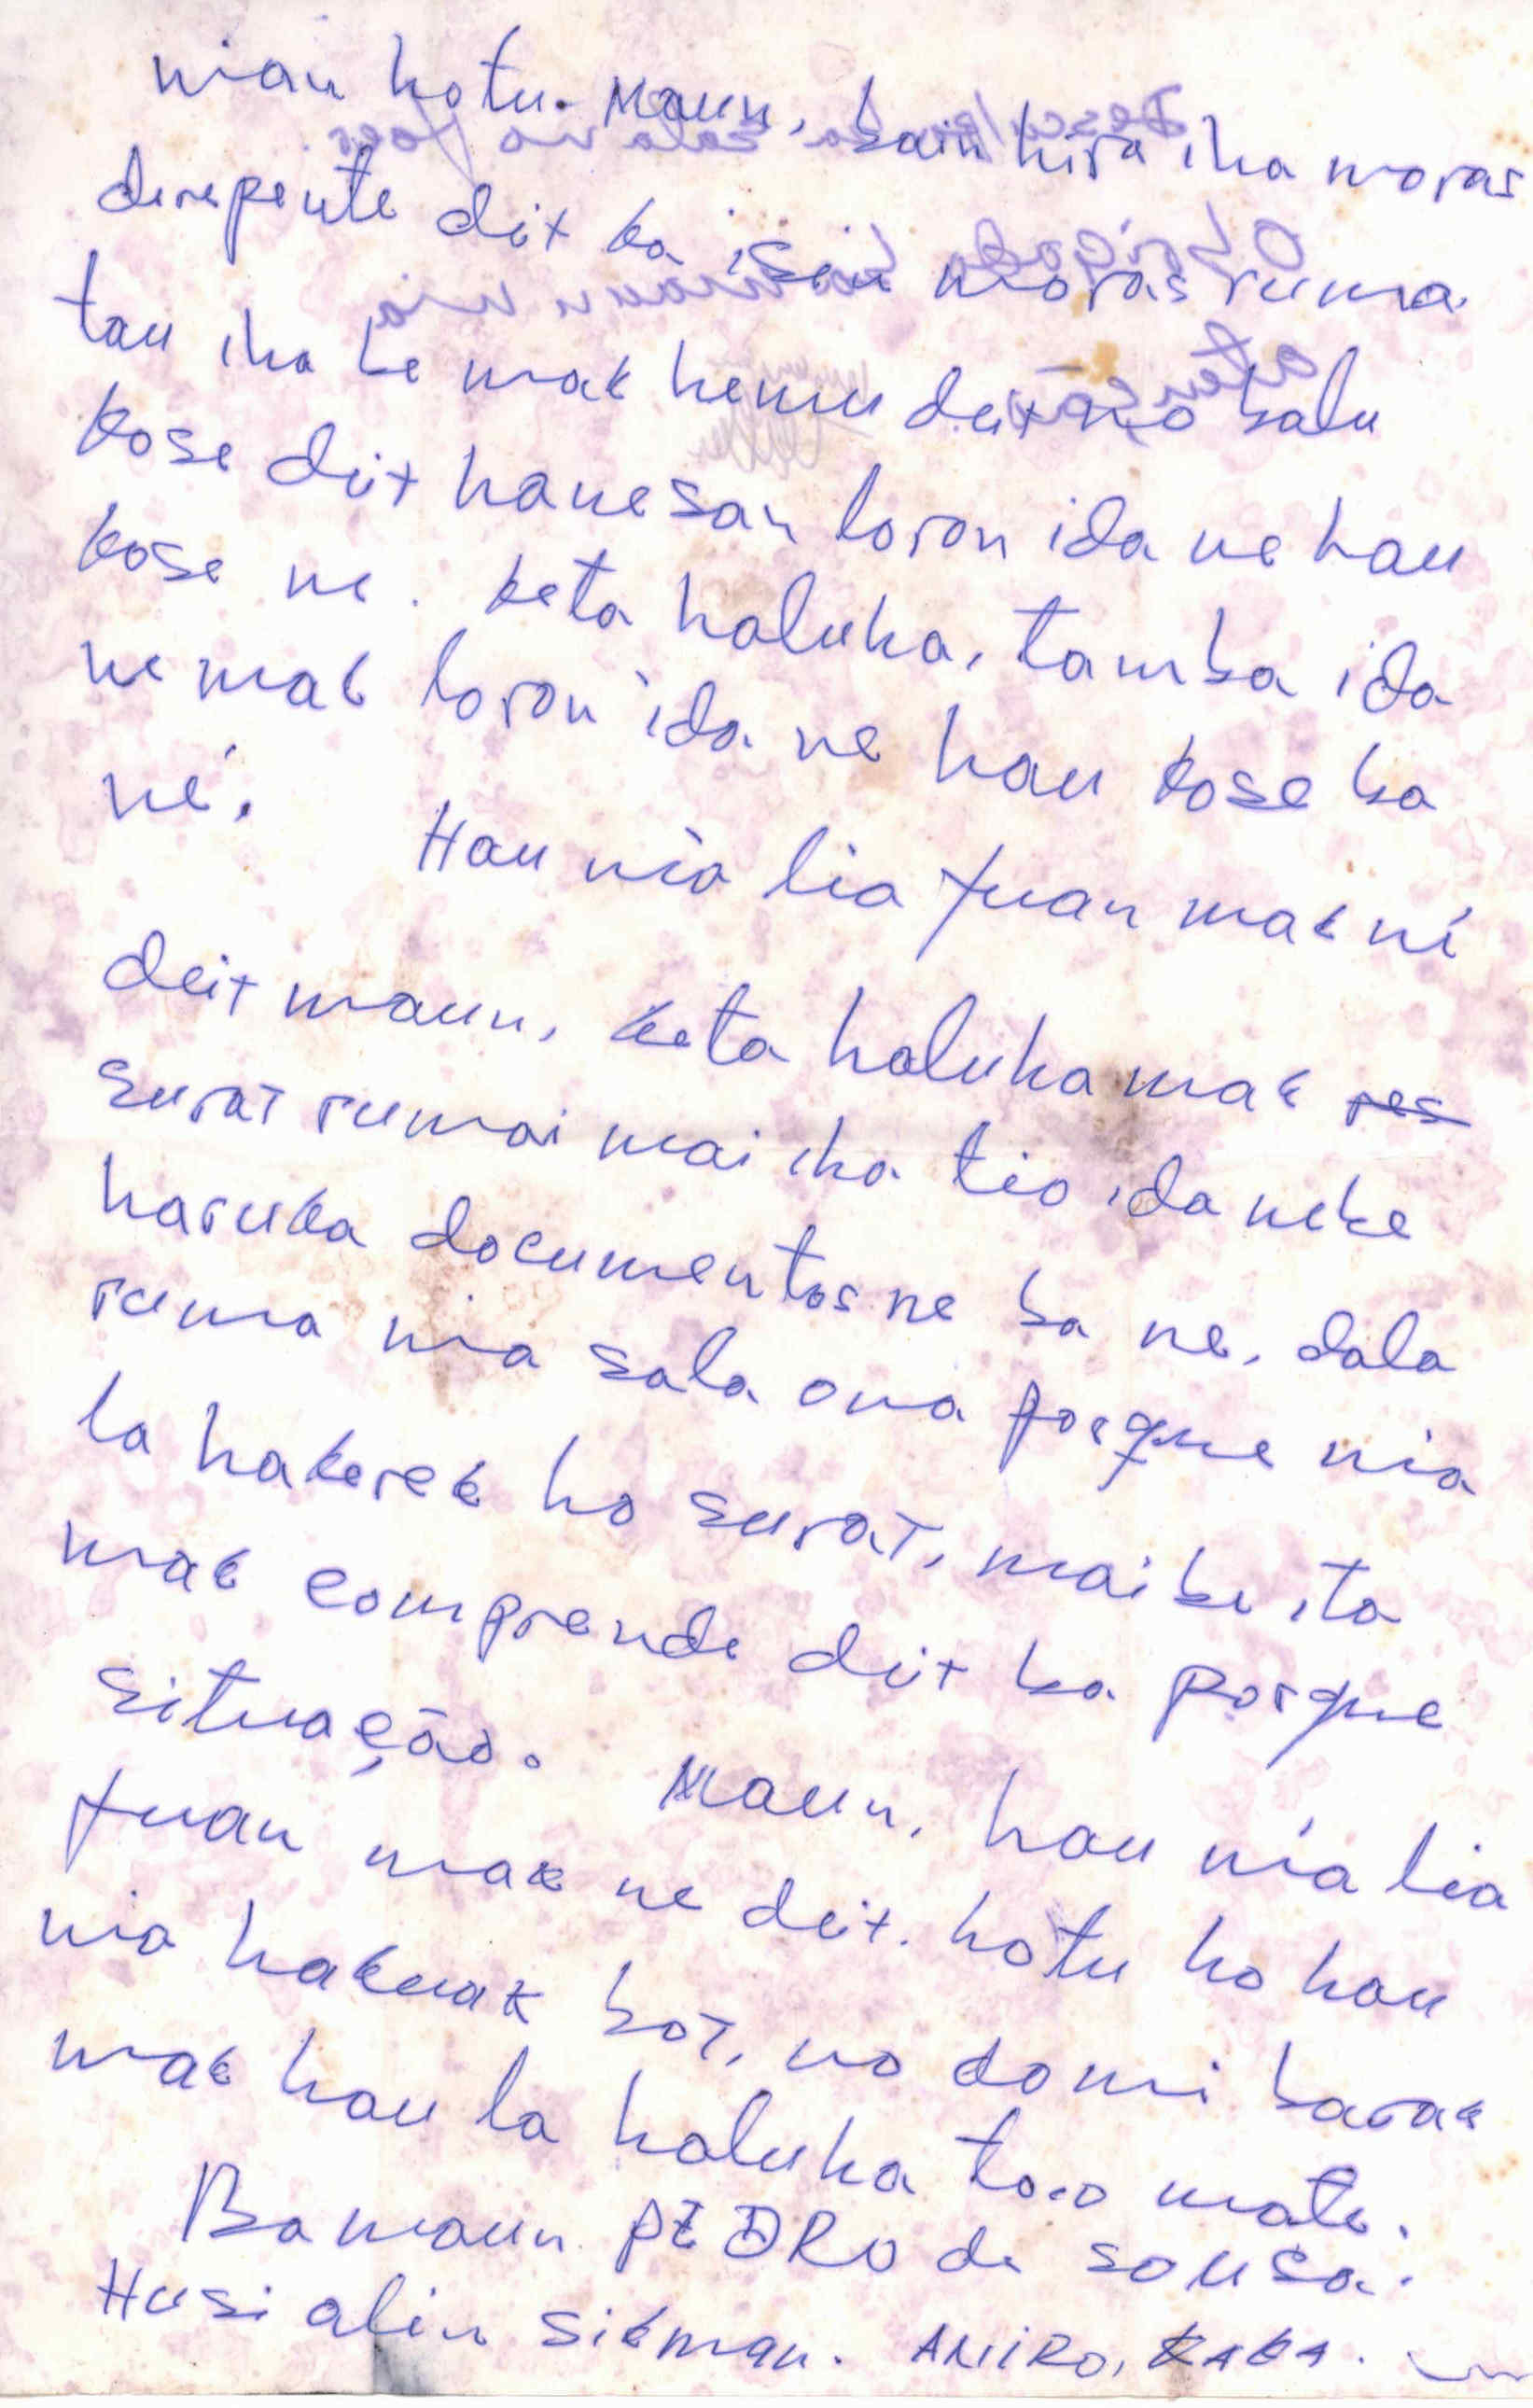 nian hotu. Maun, bain hira iha moras
derepente dit ba isin moras ruma
tau iha be mak hemu deit no balu
kose dit hanesan loron ida ne hau
kose ne. keta haluha, tamba ida
ne mak loron ida ne hau kose ba
né. Hau nia lia fuan mak né
deit maun, keta haluha mak res
surat rumai mai iha tio ida nebe
haruka documentos ne ba ne, dala
ruma nia sala ona porque nia
la hakerek ho surat, maibe ita
mak comprende dit ba porque
situação. Maun, hau nia lia
fuan mak ne deit. hotu ho hau
nia hakuak bot, no domi barak
mak hau la haluha too mate.
Ba maun PEDRO de sousa.
Husi alin sikman. AMIRO, KAKA.